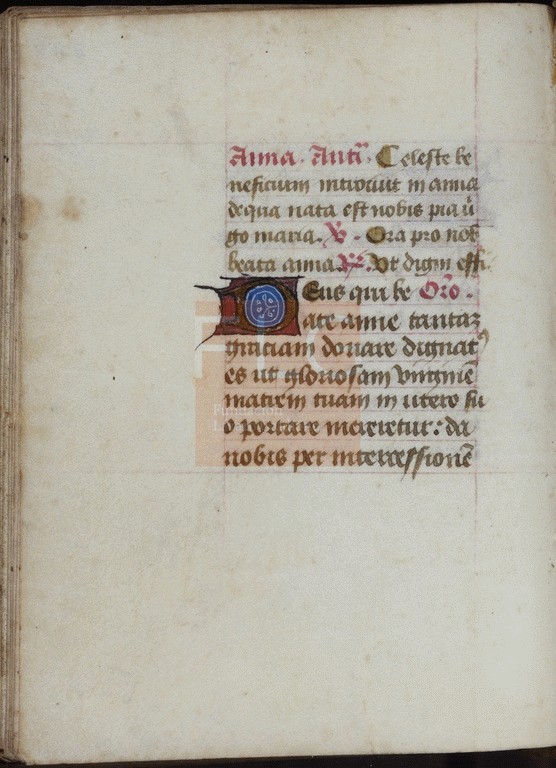 Anna. Antiᵃ. Celeste be
neficium introiuit in anna
de qua nata est nobis pia ūi
go maria. ℣. Ora pro nob
beata anna. ℟. Vt digni effi.
Deus qui be Oro.
ate anne tantaꝫ
gratiam donare dignat
es ut gloriosam virginē
matrem tuam in utero su
o portare mereretur: da
nobis per intercessionē